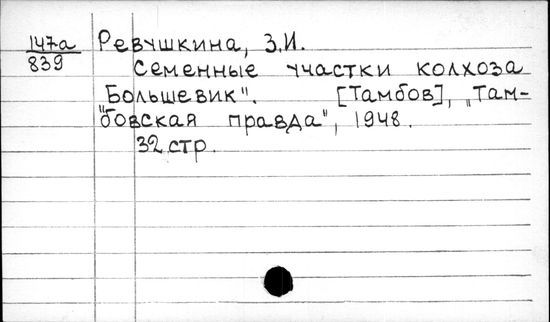 147а
839
Ревушкина, З.И.
Семенные участки колхоза
"Большевик". [Тамбов], „Там-
бовская правда", 1948.
32 стр.